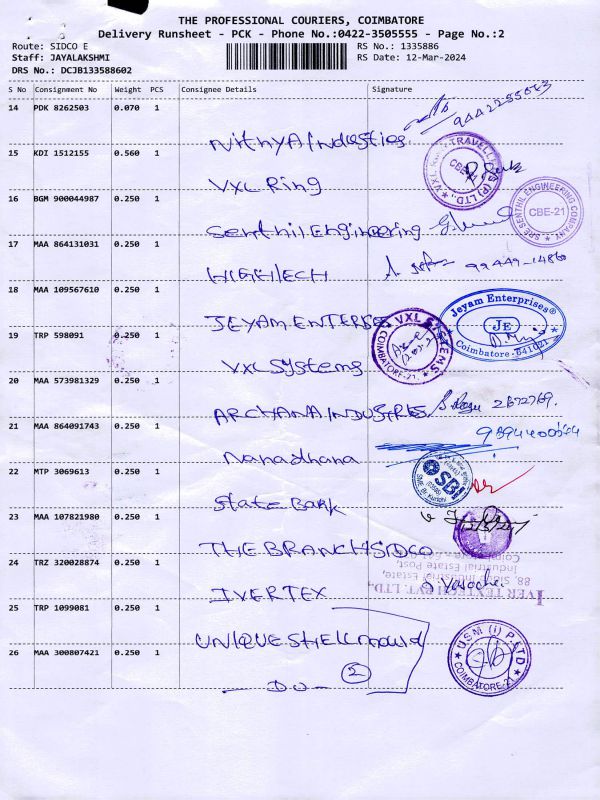 THE PROFESSIONAL COURIERS, COIMBATORE
Delivery Runsheet - PCK - Phone No.:0422-3505555 - Page No.:2
Route: SIDCO E
RS No.: 1335886
Staff: JAYALAKSHMI
RS Date: 12-Mar-2024
DRS No.: DCJB133588602
S No Consignment No Weight PCS Consignee Details Signature
14 PDK 8262503 0.070 1
NithyA Industies
15 KDI 1512155 0.560 1
VXL Ring
TRAVELLERS (P) LTD.,
CBE
16 BGM 900044987 0.250 1
Senthil Engineering
SRE SENTHIL ENGINEERING COMPANY
CBE-21
17 MAA 864131031 0.250 1
HIGHTECH
99449-14860
18 MAA 109567610 0.250 1
JEYAM ENTERSE
Jeyam Enterprises®
JE
Coimbatore - 641021
19 TRP 598091 0.250 1
VXL Systems
VXL SYSTEMS
COIMBATORE-21.
20 MAA 573981329 0.250 1
ARCHANA INDUSTRIES
2672769.
21 MAA 864091743 0.250 1
Nanadhana
22 MTP 3069613 0.250 1
State Bank
SBI
23 MAA 107821980 0.250 1
THE BRANCH SIDCO
24 TRZ 320028874 0.250 1
IVERTEX
88, Sidco Industrial Estate,
Industrial Estate Post,
25 TRP 1099081 0.250 1
UNIQUE SHELL mould
26 MAA 300807421 0.250 1
- DO -
2
U.S.M (i) P. LTD
COIMBATORE-21